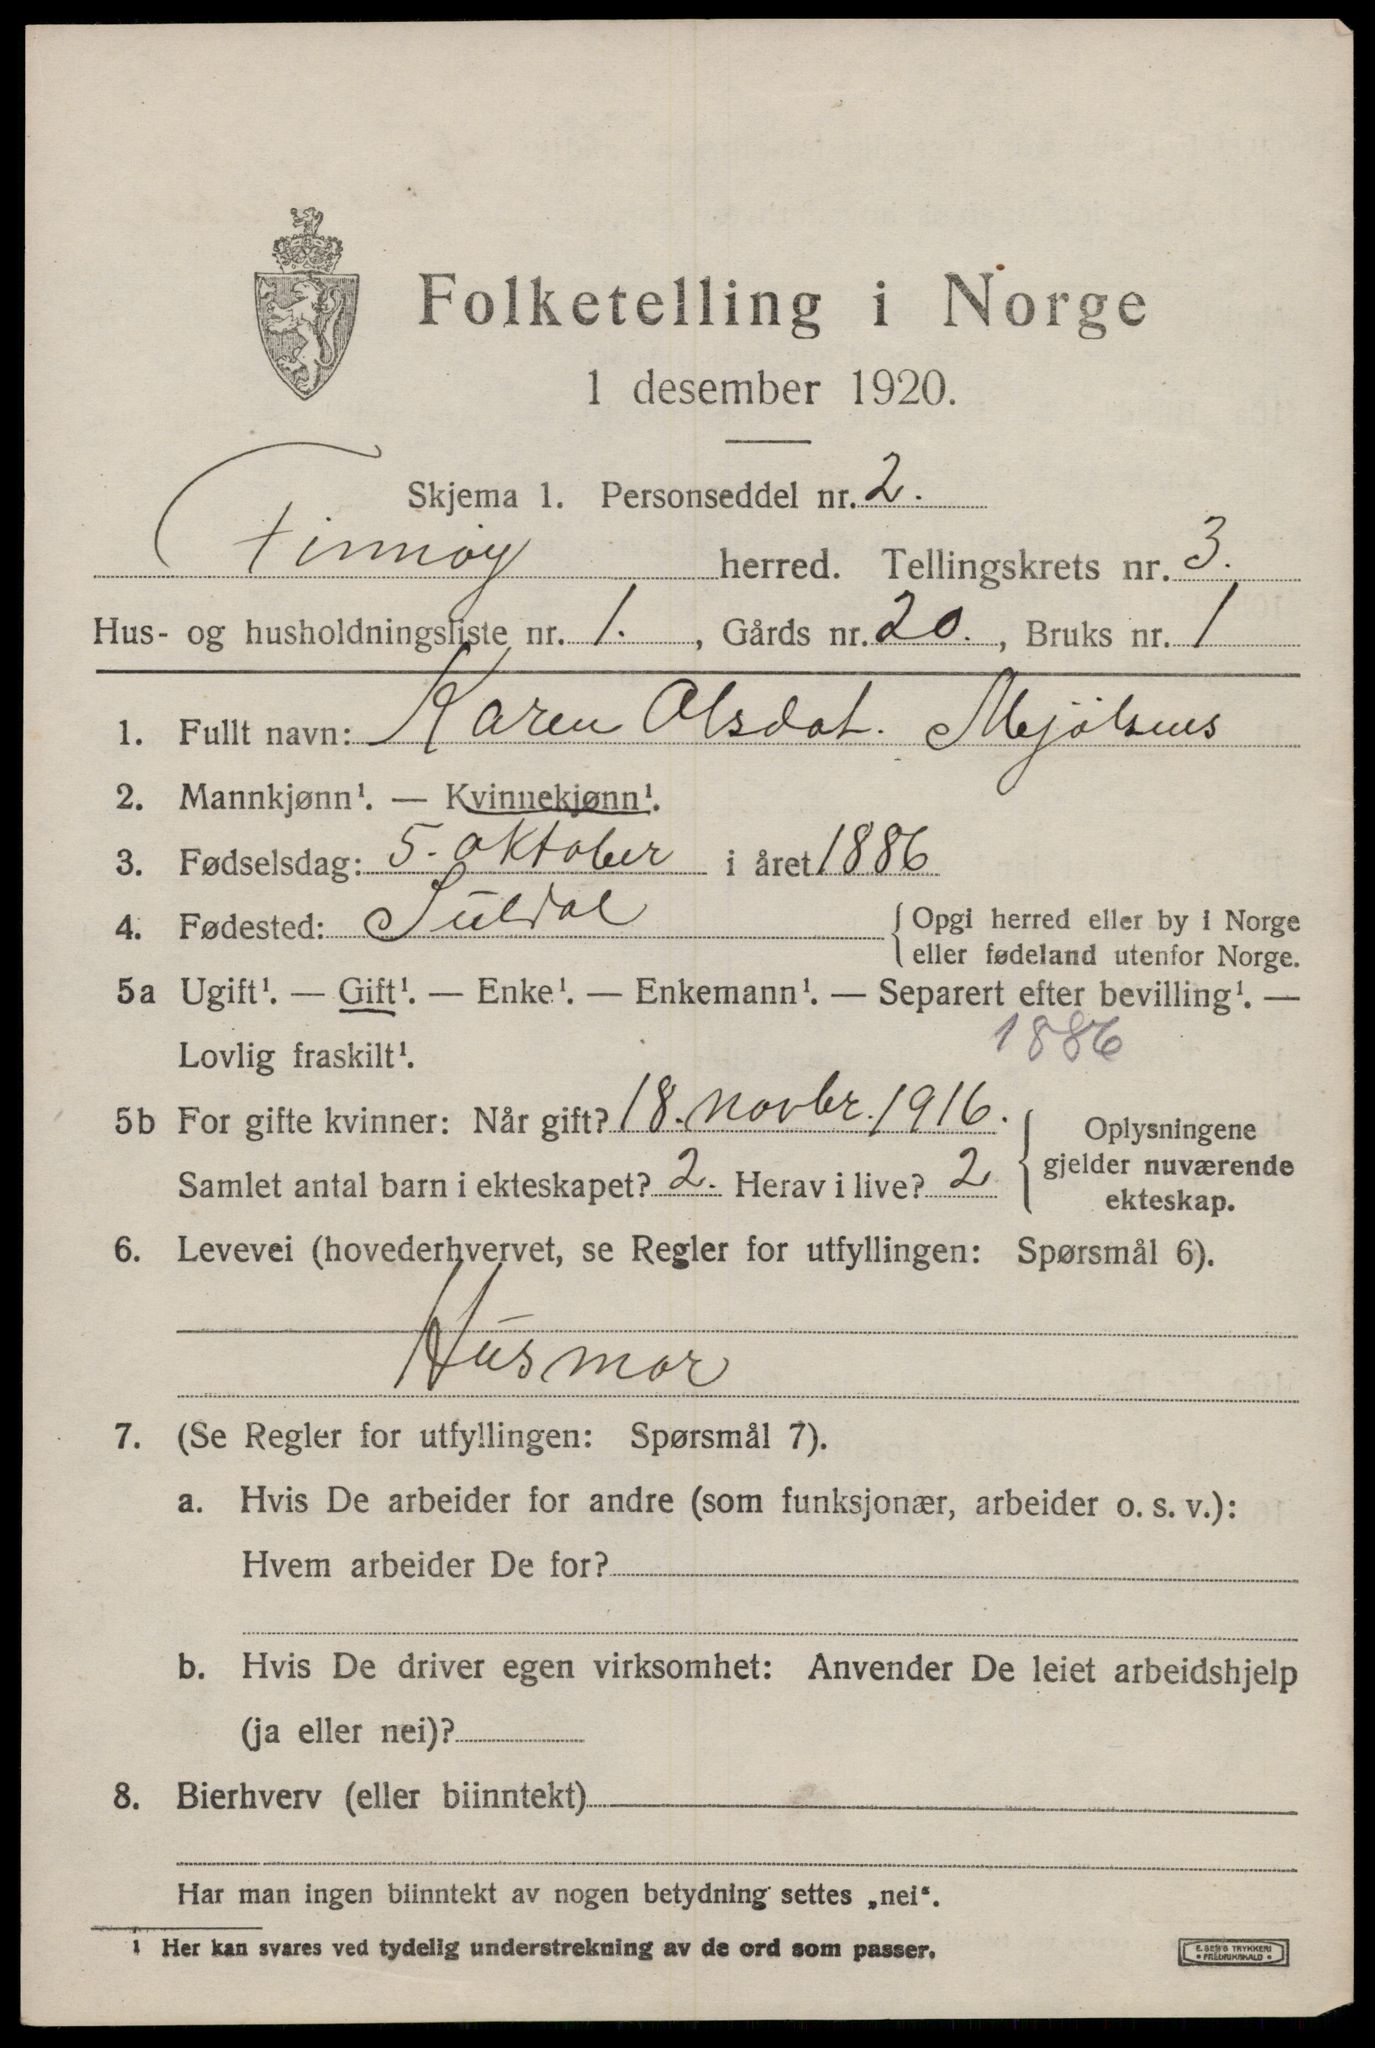 Folketelling i Norge
1 desember 1920.
Skjema 1. Personseddel nr. 2.
Finnøy herred. Tellingskrets nr. 3.
Hus- og husholdningsliste nr. 1. , Gårds nr. 20. , Bruks nr. 1
1. Fullt navn: Karen Olsdat. Mjølsnes
2. Mannkjønn¹. — Kvinnekjønn¹.
3. Fødselsdag: 5. oktober i året 1886
4. Fødested: Suldal { Opgi herred eller by i Norge
eller fødeland utenfor Norge.
5a Ugift¹. — Gift¹. — Enke¹. — Enkemann¹. — Separert efter bevilling¹. —
Lovlig fraskilt¹. 1886
5b For gifte kvinner: Når gift? 18. novbr. 1916.
Samlet antal barn i ekteskapet? 2. Herav i live? 2
{ Oplysningene
gjelder nuværende
ekteskap.
6. Levevei (hovederhvervet, se Regler for utfyllingen: Spørsmål 6).
Husmor
7. (Se Regler for utfyllingen: Spørsmål 7).
a. Hvis De arbeider for andre (som funksjonær, arbeider o. s. v.):
Hvem arbeider De for?
b. Hvis De driver egen virksomhet: Anvender De leiet arbeidshjelp
(ja eller nei)?
8. Bierhverv (eller biinntekt)
Har man ingen biinntekt av nogen betydning settes „nei“.
1 Her kan svares ved tydelig understrekning av de ord som passer.
E. SEM'S TRYKKERI
• FREDRIKSHALD •